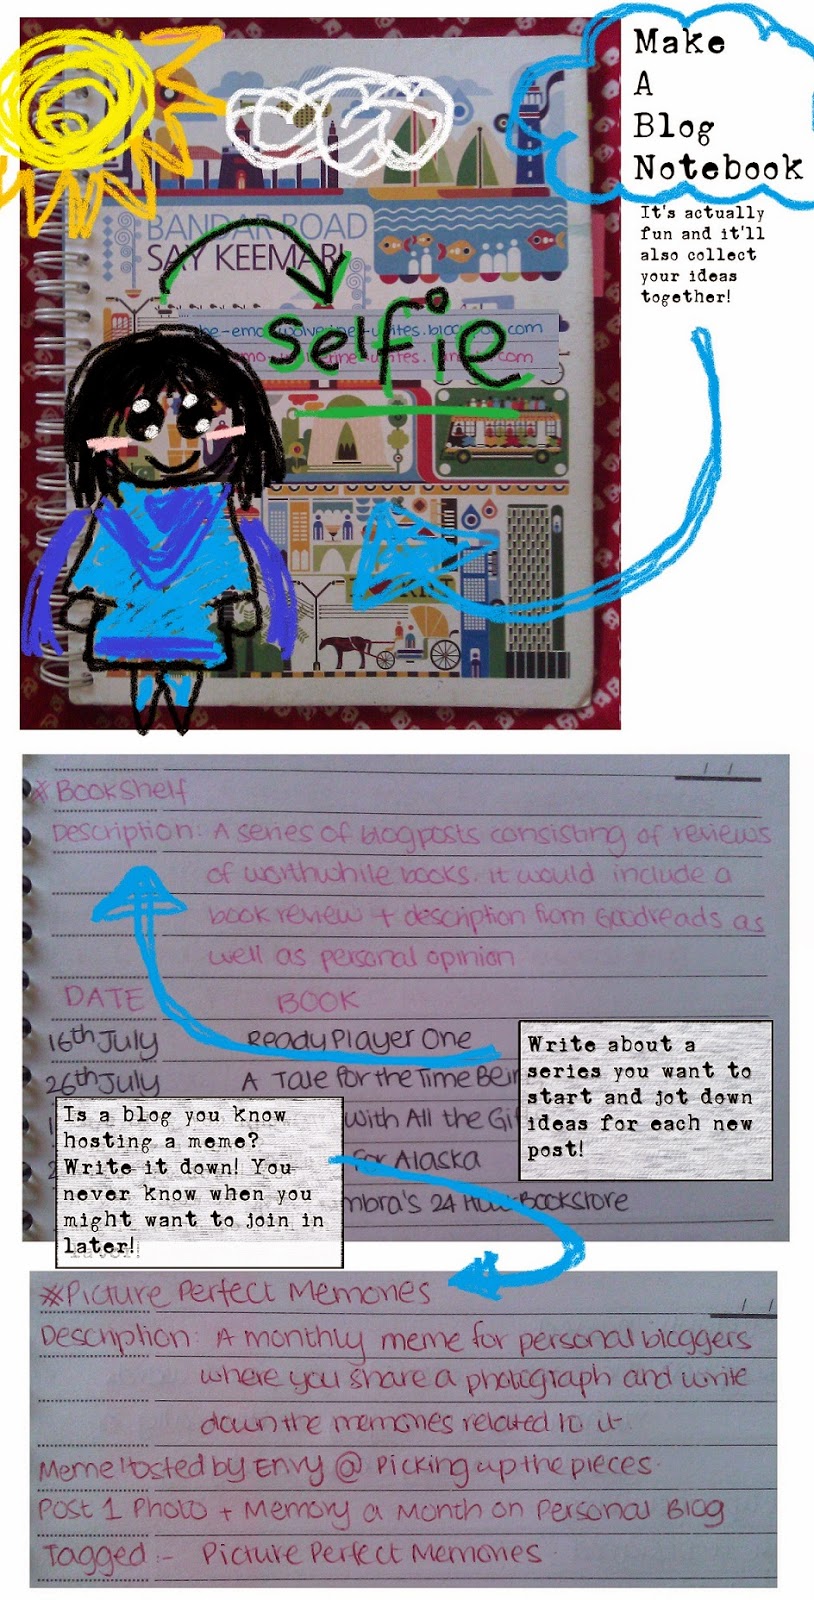 Make
A
Blog
Notebook
It's actually
fun and it'll
also collect
your ideas
together!
BANDAR ROAD
SAY KEEMARI
Selfie
#Bookshelf
Description: A series of blogposts consisting of reviews
of worthwhile books. It would include a
book review + description from Goodreads as
well as personal opinion
DATE BOOK
16th July Ready Player One
26th July A Tale for the Time Bein
With All the Gif
for Alaska
mbra's 24 Hour Bookstore
Write about a
series you want to
start and jot down
ideas for each new
post!
Is a blog you know
hosting a meme?
Write it down! You
never know when you
might want to join in
later!
#Picture Perfect Memories
Description: A monthly meme for personal bloggers
where you share a photograph and write
down the memories related to it.
Meme Hosted by Envy @ Picking up the pieces.
Post 1 Photo + Memory a Month on Personal Blog
Tagged:- Picture Perfect Memories